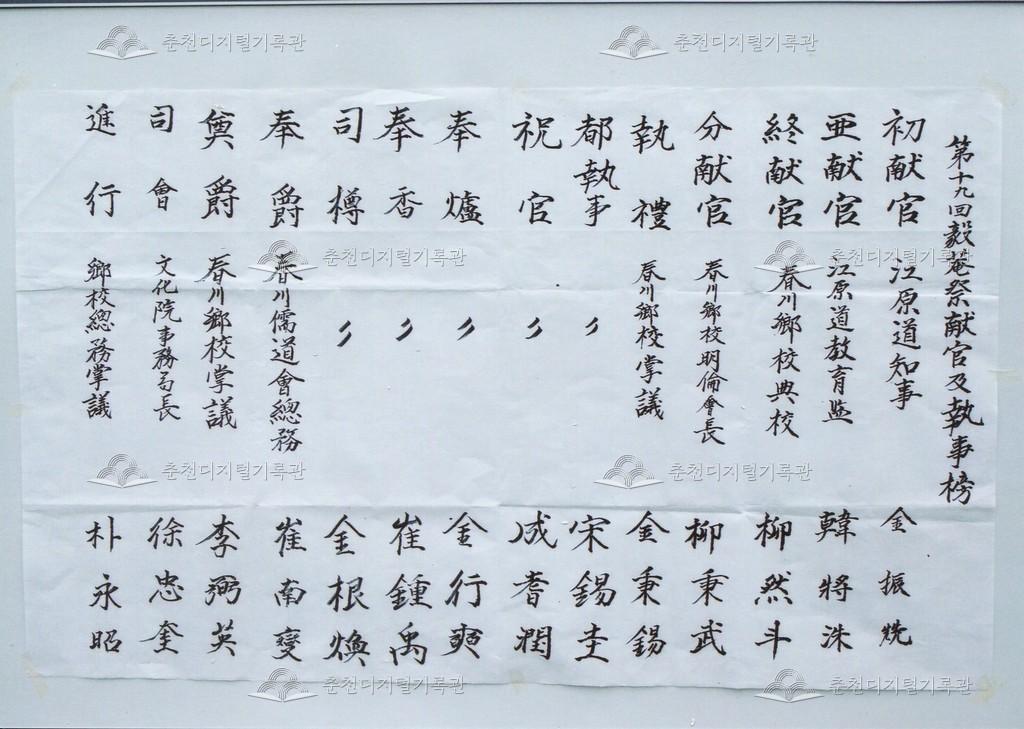 第十九回毅菴祭献官及執事榜
初献官 江原道知事 金振㷂
亜献官 江原道教育監 韓將洙
終献官 春川鄉校典校 柳然斗
分献官 春川鄉校明倫會長 柳秉武
執禮 春川鄉校掌議 金秉錫
都執事 〃 宋錫圭
祝官 〃 成耆潤
奉爐 〃 金行爽
奉香 〃 崔鍾禹
司樽 〃 金根煥
奉爵 春川儒道會總務 崔南燮
奠爵 春川鄉校掌議 李弼英
司會 文化院事務局長 徐忠奎
進行 鄉校總務掌議 朴永昭
춘천디지털기록관
춘천디지털기록관
춘천디지털기록관
춘천디지털기록관
춘천디지털기록관
춘천디지털기록관
춘천디지털기록관
춘천디지털기록관